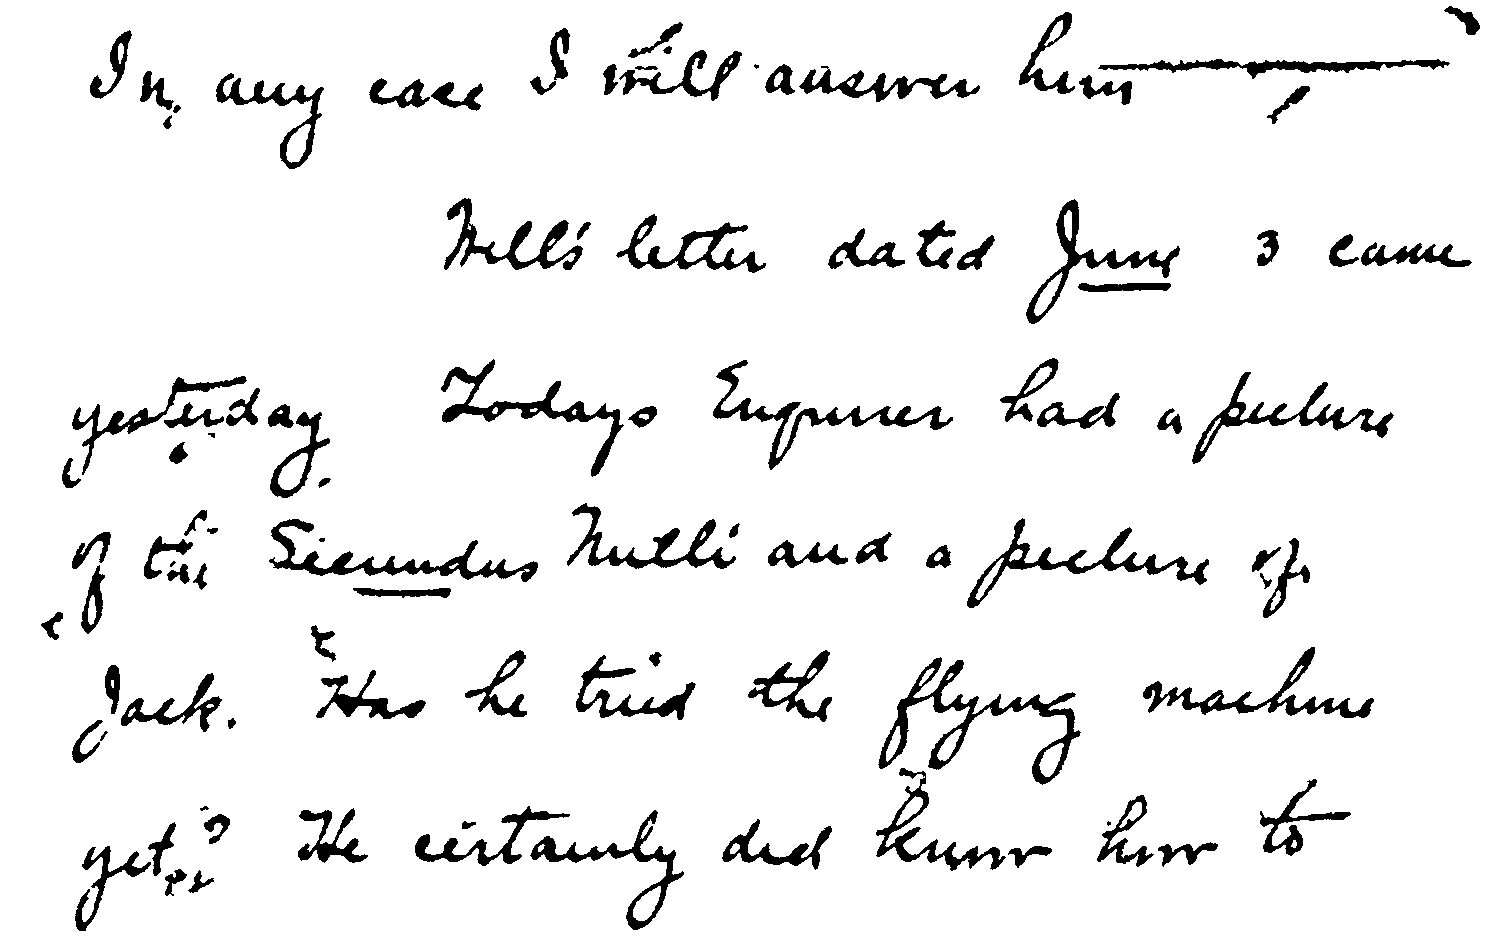 In any case I will answer him
Will's letter dated June 3 came
yesterday. Todays Enquirer had a picture
of the Secundus Nulli and a picture of
Jack. Has he tried the flying machine
yet? He certainly did know how to